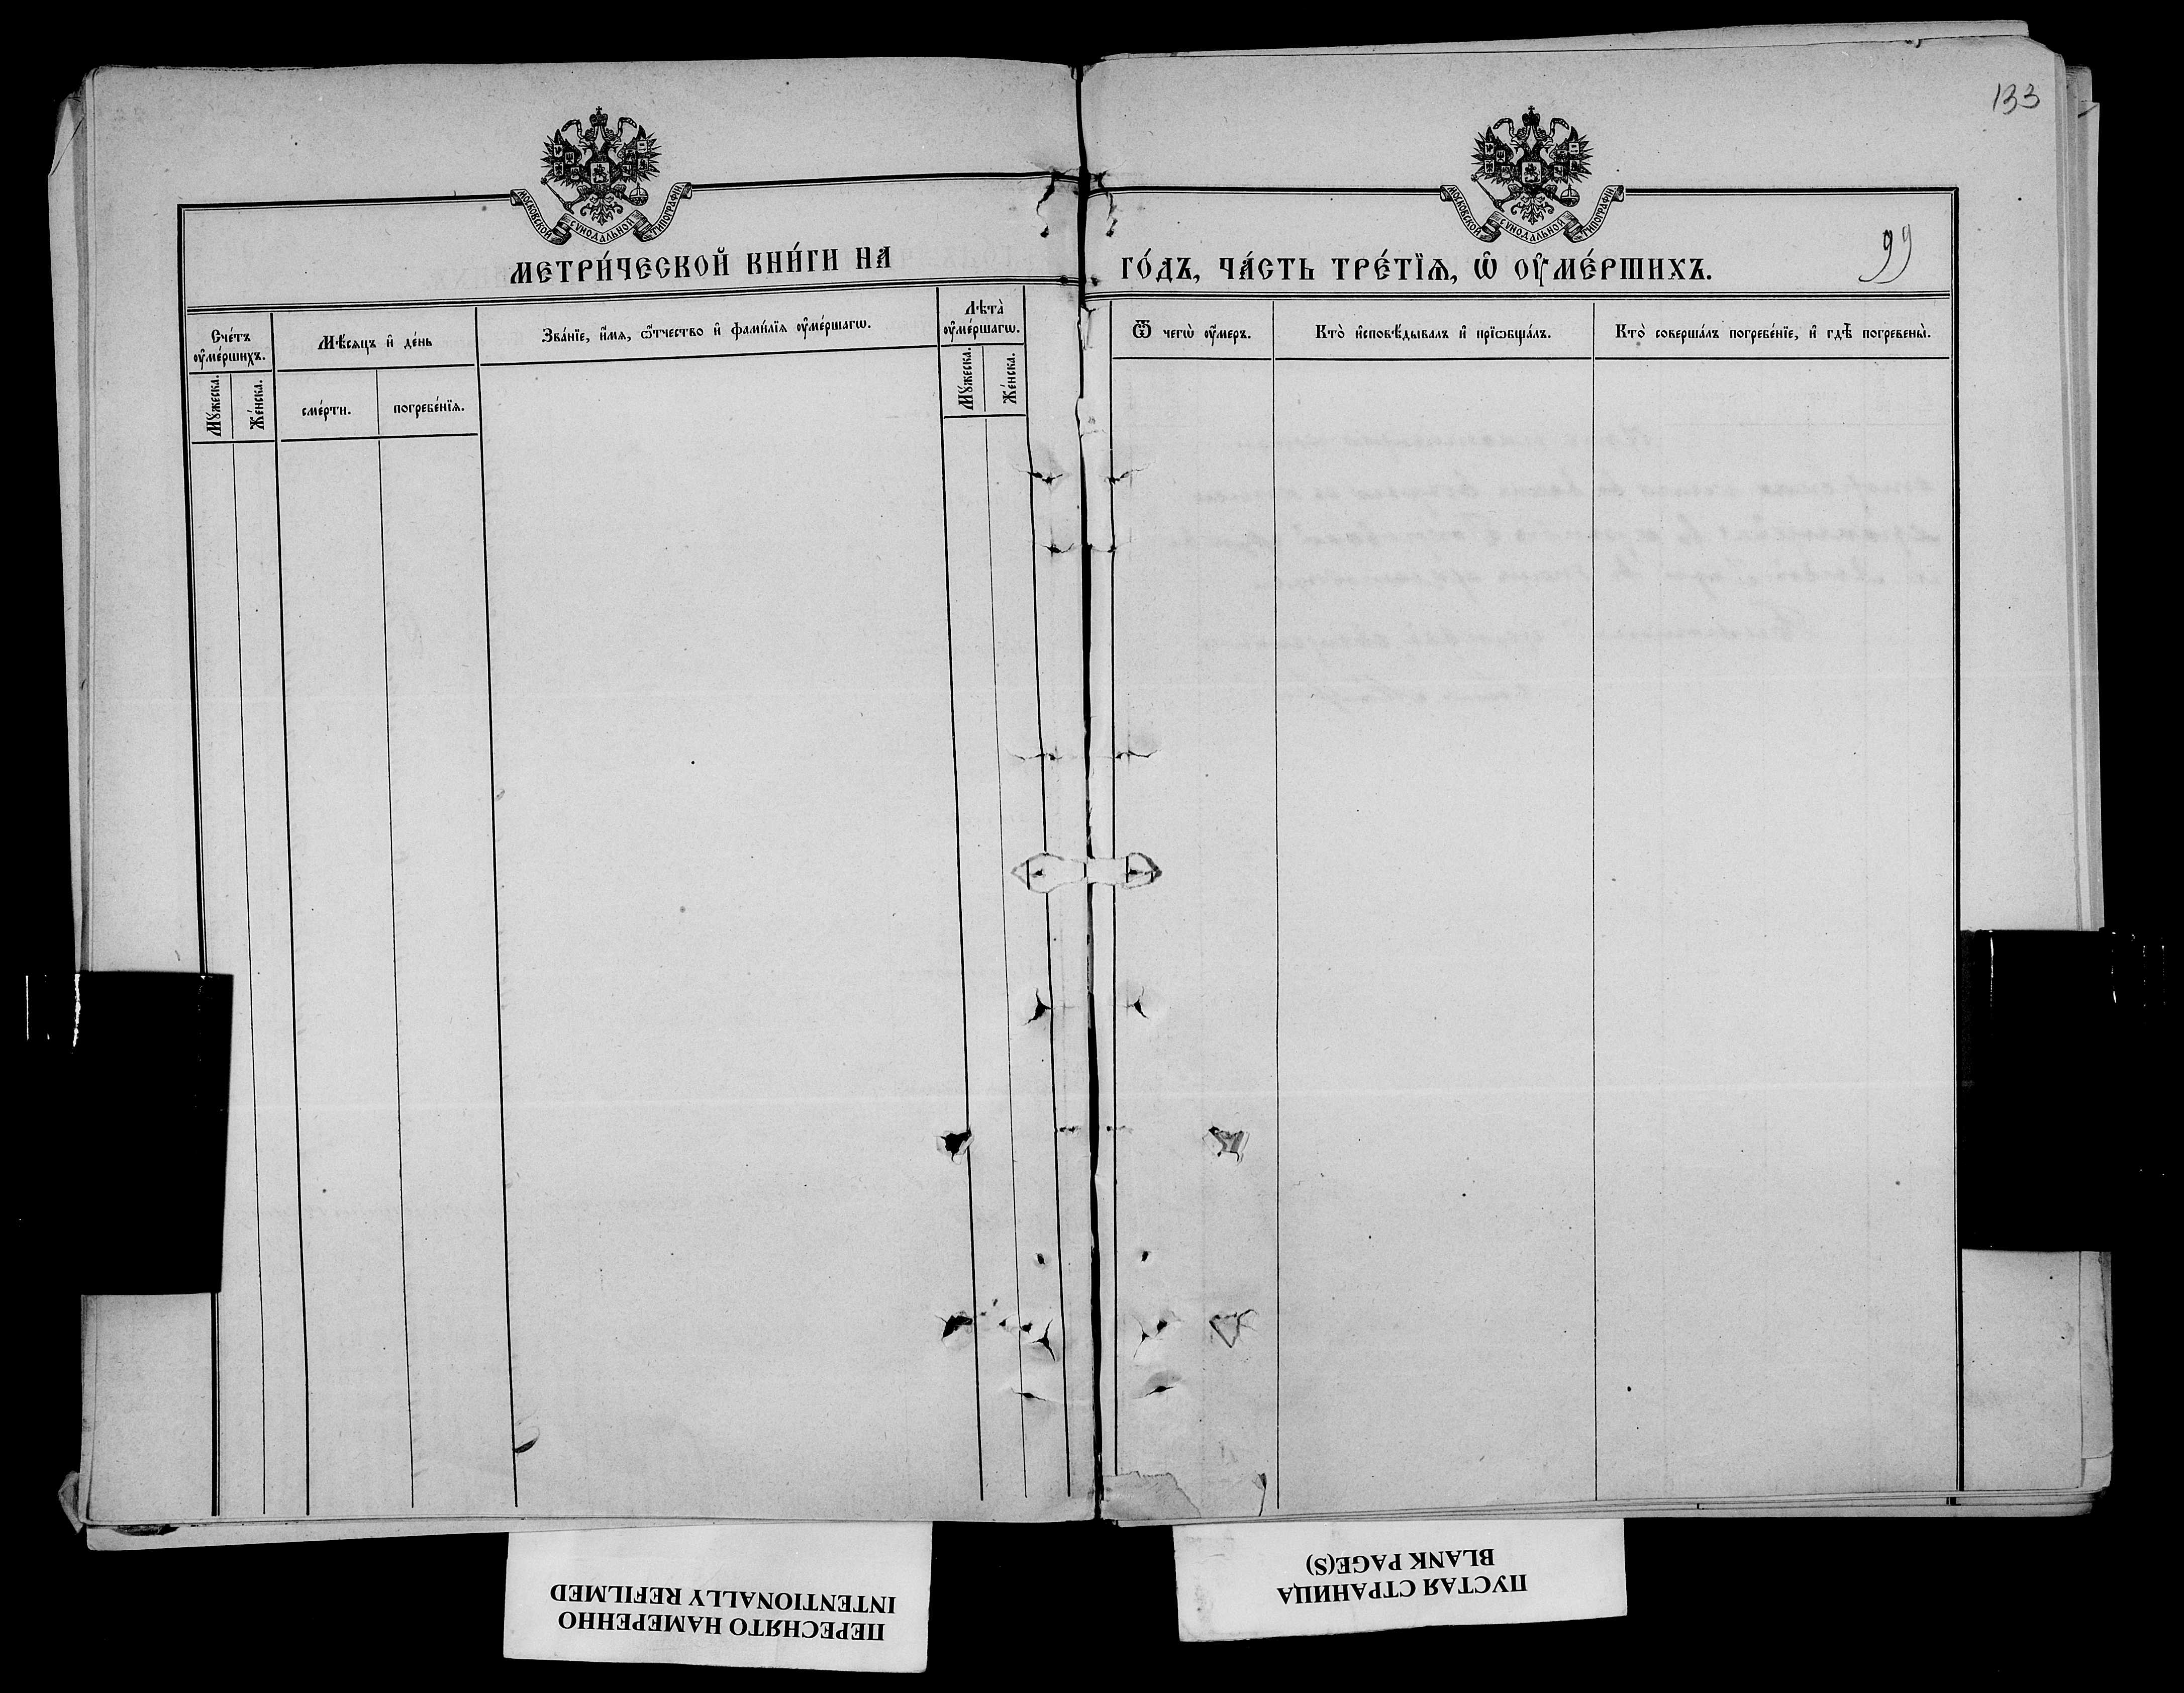 133
МОСКОВСКОЙ СѴНОДАЛЬНОЙ ТИПОГРАФІИ
МОСКОВСКОЙ СѴНОДАЛЬНОЙ ТИПОГРАФІИ
МЕТРИ́ЧЕСКОЙ КНИ́ГИ НА
ГО́ДЪ, ЧА́СТЬ ТРЕ́ТЇѦ, Ѡ҆ ОУ҆МЕ́РШИХЪ.
99
Сче́тъ
оу҆ме́ршихъ.
Мꙋ́жеска.
Же́нска.
Мѣ́сяцъ и҆ де́нь
сме́рти.
погребе́нїѧ.
Зва́нїе, и҆́мѧ, ѻ҆́тчество и҆ фами́лїѧ оу҆ме́ршагѡ.
Лѣта̀
оу҆ме́ршагѡ.
Мꙋ́жеска.
Же́нска.
Ѿ чегѡ̀ оу҆́меръ.
Кто̀ и҆сповѣ́дывалъ и҆ прїѡбща́лъ.
Кто̀ соверша́лъ погребе́нїе, и҆ гдѣ̀ погребены̀.
ПЕРЕСНЯТО НАМЕРЕННО
INTENTIONALLY REFILMED
ПУСТАЯ СТРАНИЦА
BLANK PAGE(S)